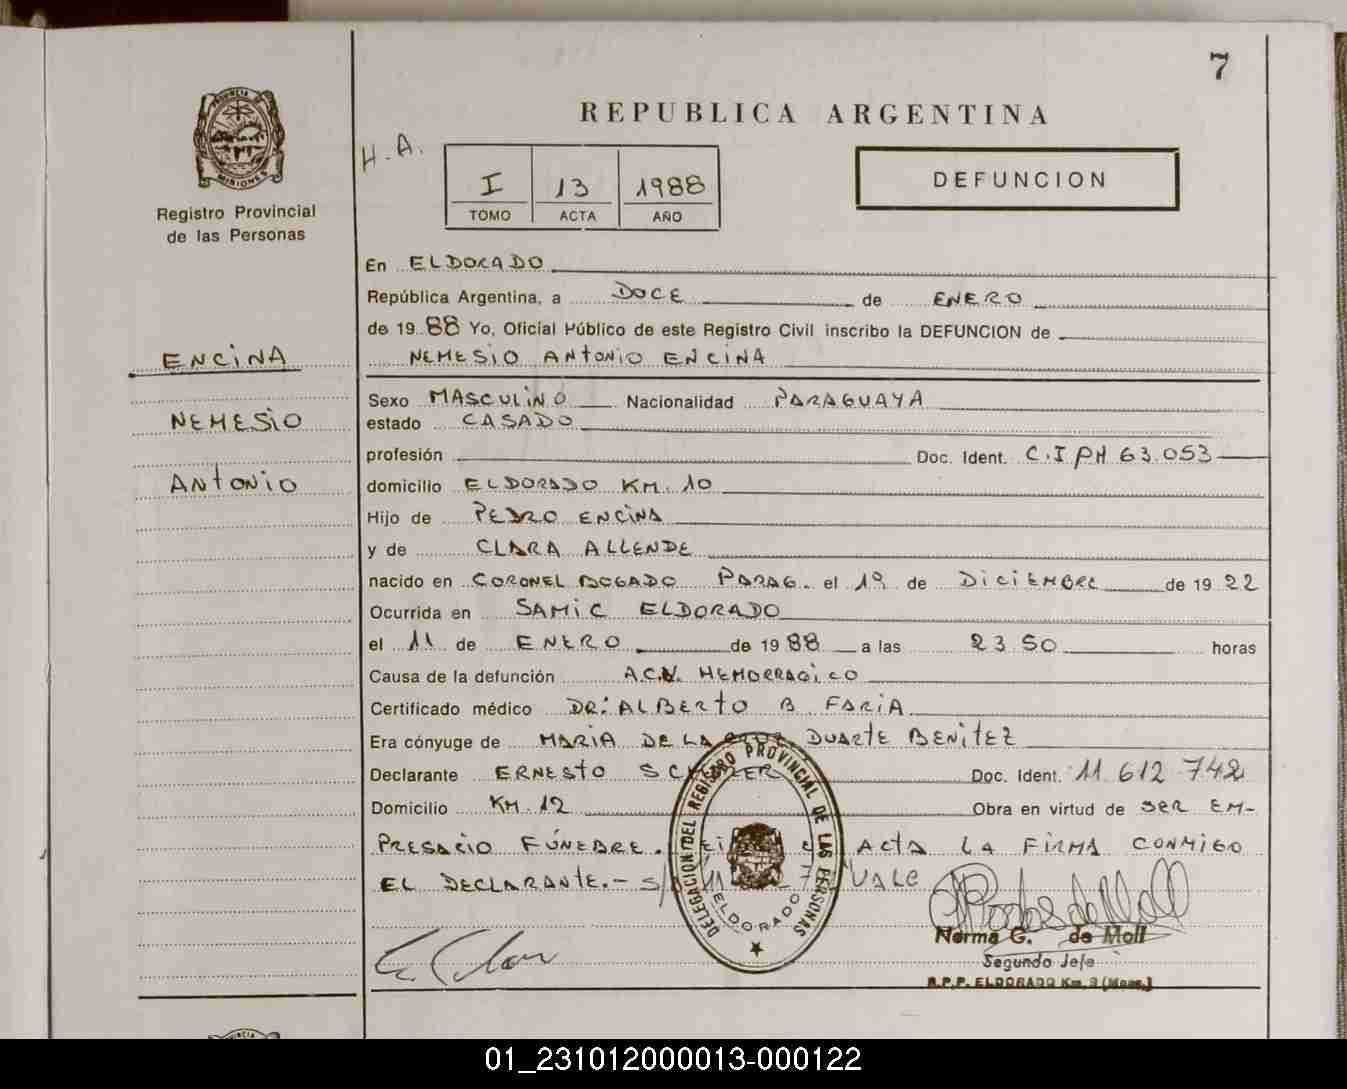 7
REPUBLICA ARGENTINA
PROVINCIA DE
MISIONES
Registro Provincial
de las Personas
H.A.
I 13 1988
TOMO ACTA AÑO
DEFUNCION
ENCINA
NEMESIO
ANTONIO
En ELDORADO
República Argentina, a DOCE de ENERO
de 19 88 Yo, Oficial Público de este Registro Civil inscribo la DEFUNCION de
NEMESIO ANTONIO ENCINA
Sexo MASCULINO Nacionalidad PARAGUAYA
estado CASADO
profesión Doc. Ident. C.I PH 63.053
domicilio ELDORADO KM. 10
Hijo de PEDRO ENCINA
y de CLARA ALLENDE
nacido en CORONEL BOGADO PARAG. el 19 de DICIEMBRE de 19 22
Ocurrida en SAMIC ELDORADO
el 11 de ENERO de 19 88 a las 23.50 horas
Causa de la defunción A.C.V. HEMORRAGICO
Certificado médico DR: ALBERTO B. FARIA
Era cónyuge de MARIA DE LA DUARTE BENITEZ
Declarante ERNESTO Doc. Ident. 11 612 742
Domicilio KM. 12 Obra en virtud de SER EM-
PRESARIO FÚNEBRE. ACTA LA FIRMA CONMIGO
EL DECLARANTE.- VALE
DELEGACION DEL REGISTRO PROVINCIAL DE LAS PERSONAS
ELDORADO
Norma G. de Moll
Segundo Jefe
R.P.P. ELDORADO Km. 9 (Mnes.)
01_231012000013-000122